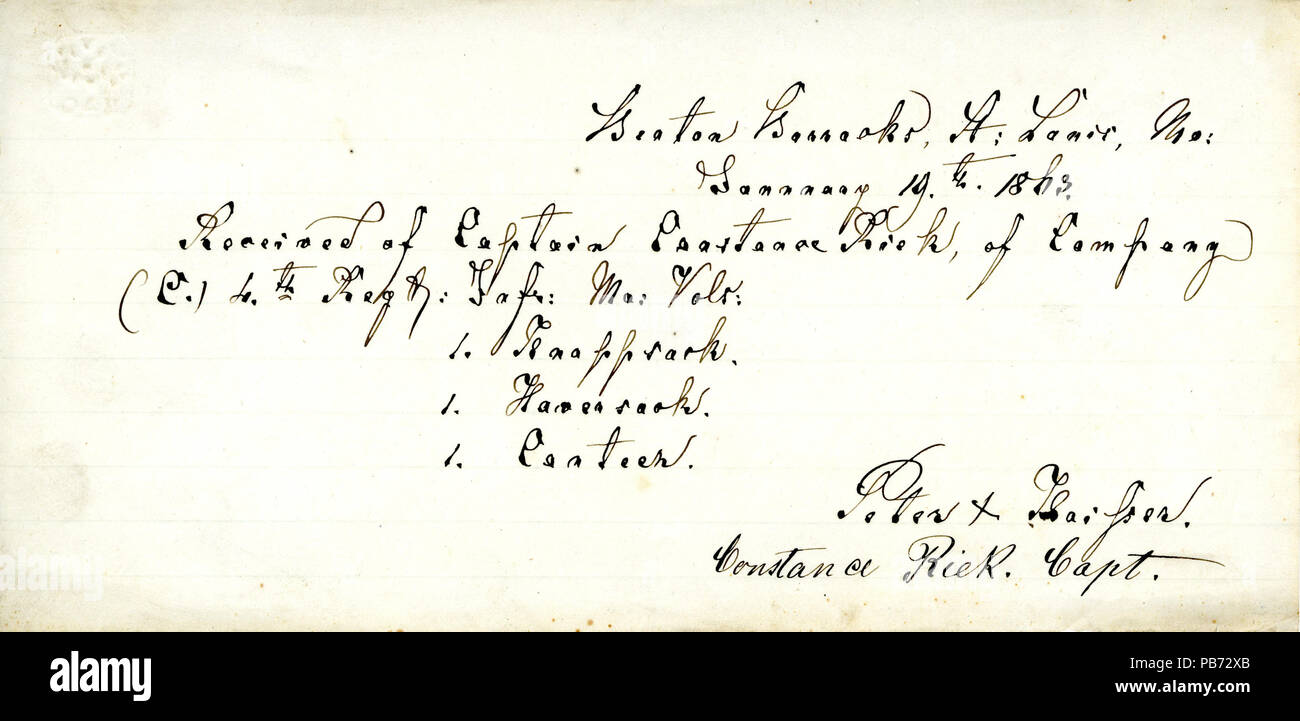 Benton Barracks, St: Louis, Mo:
January 19.th. 1863.
Received of Captain Constance Riek, of Company
(C.) 4.th Regt: Infr: Mo: Vols:
1. Knappsack.
1. Haversack.
1. Canteen.
Peter X Kaisser.
Constance Riek. Capt.
alamy
alamy stock photo
PB72XB
www.alamy.com